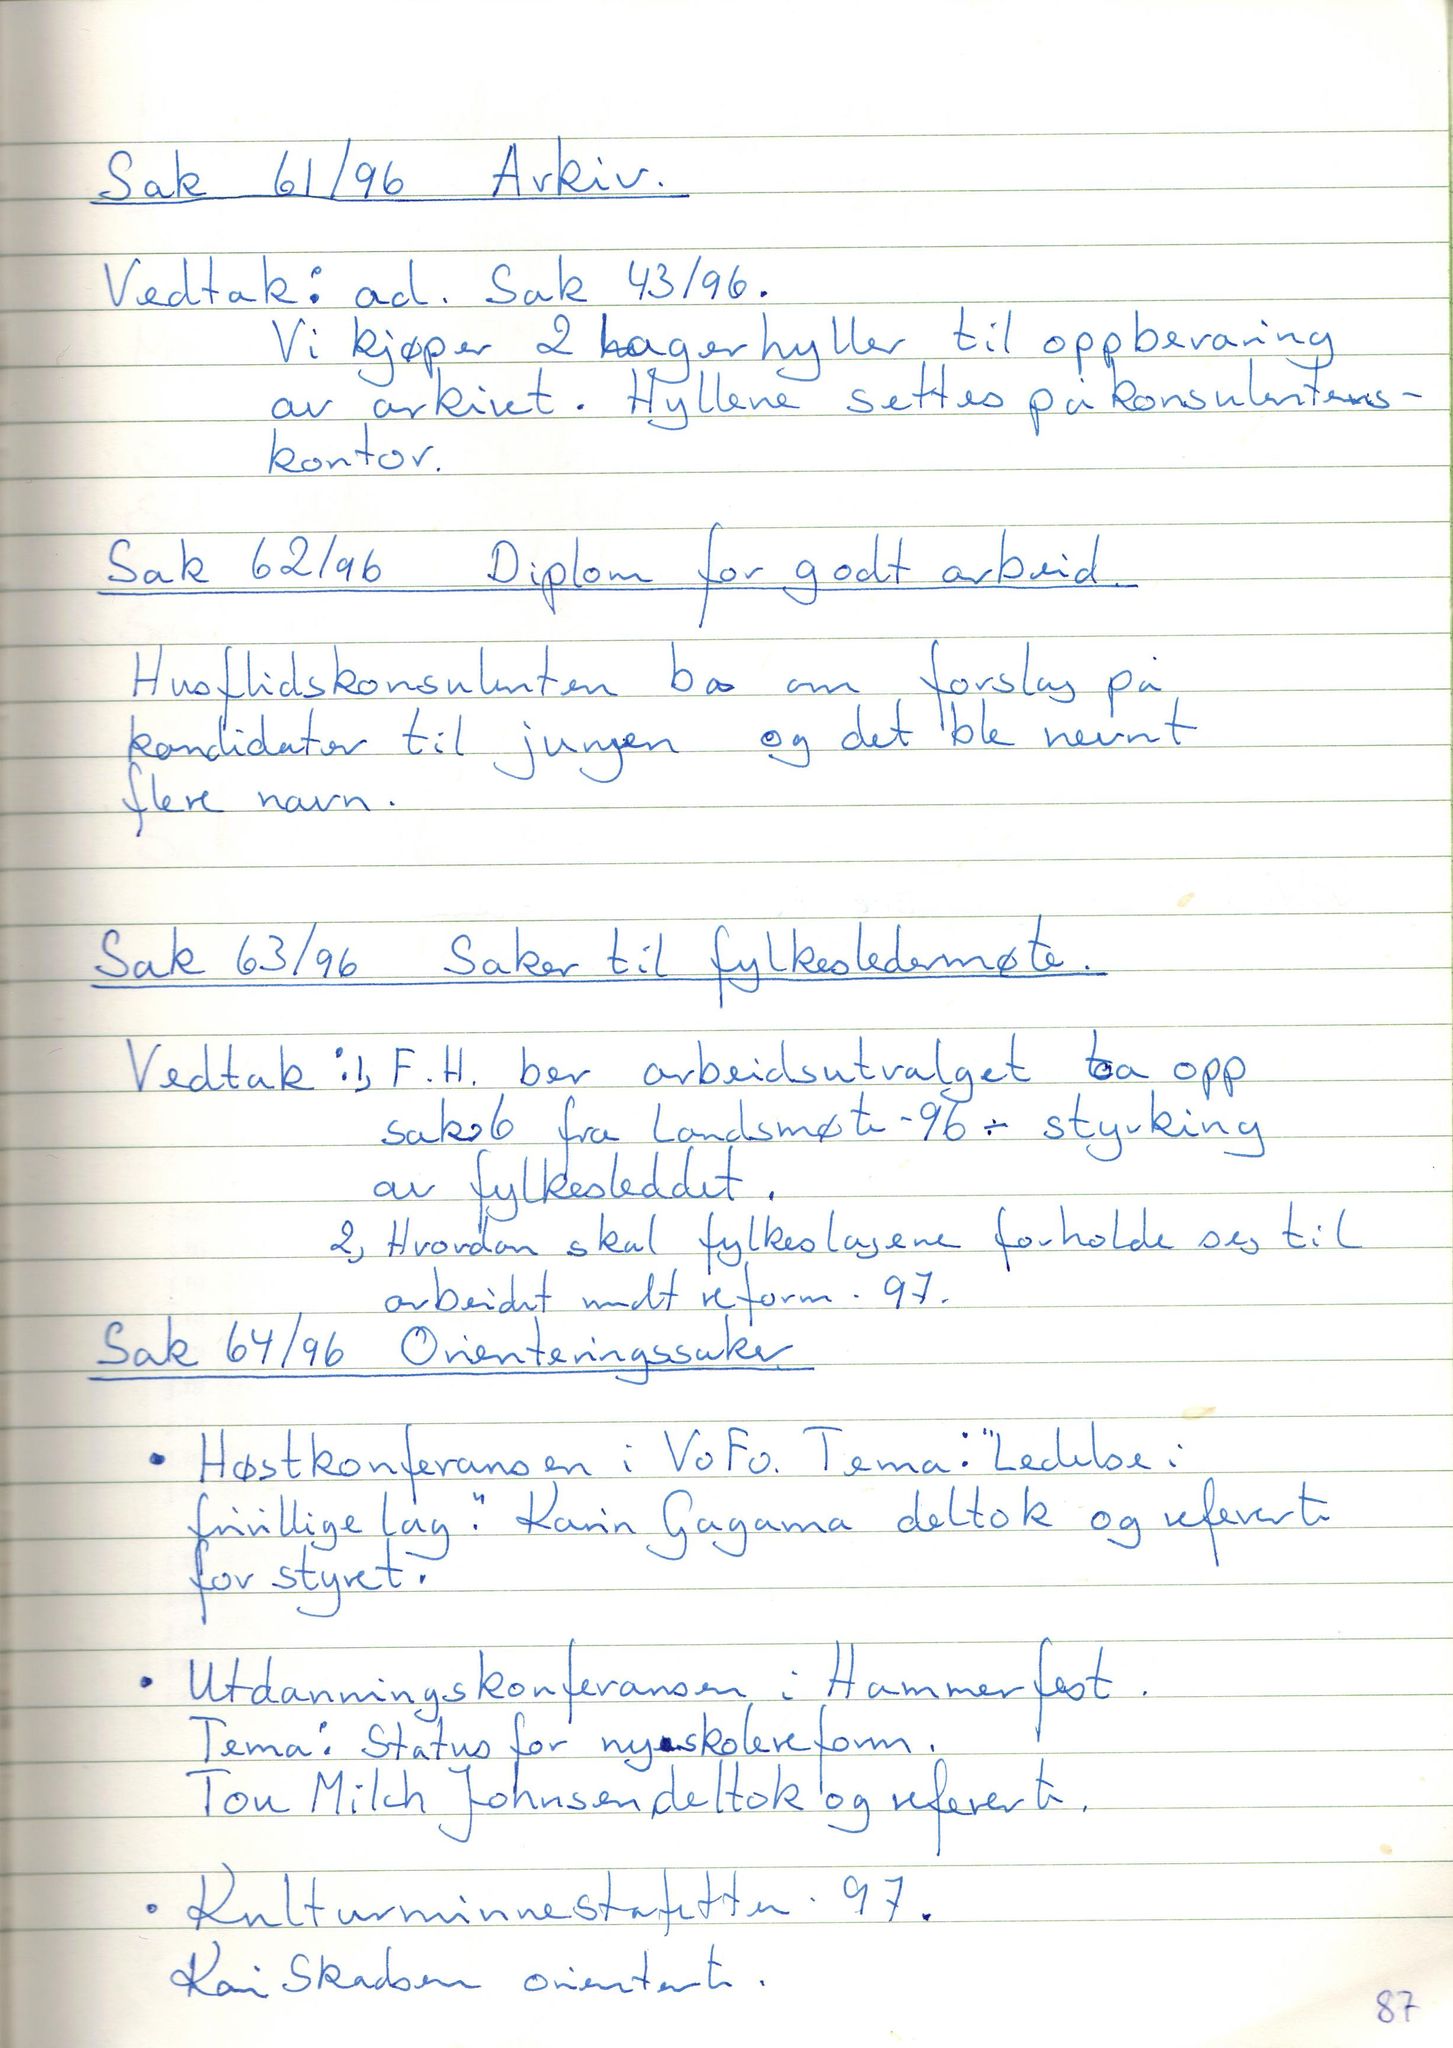 Sak 61/96 Arkiv.
Vedtak: ad. Sak 43/96.
Vi kjøper 2 lagerhyller til oppbevaring
av arkivet. Hyllene settes på konsulentens-
kontor.
Sak 62/96 Diplom for godt arbeid.
Husflidskonsulenten ba om forslag på
kandidater til juryen og det ble nevnt
flere navn.
Sak 63/96 Saker til fylkesledermøte.
Vedtak: 1, F.H. ber arbeidsutvalget ta opp
sak 6 fra Landsmøte -96 ÷ styrking
av fylkesleddet.
2, Hvordan skal fylkeslagene forholde seg til
arbeidet mdt reform. 97.
Sak 64/96 Orienteringssaker
• Høstkonferansen i VoFo. Tema: "Ledelse i
frivillige lag." Karin Gagama deltok og referert
for styret.
• Utdanningskonferansen i Hammerfest.
Tema: Status for ny skolereform.
Tou Milch Johnsen deltok og referert.
• Kulturminnestafetten. 97.
Kai Skadsem orienterte.
87